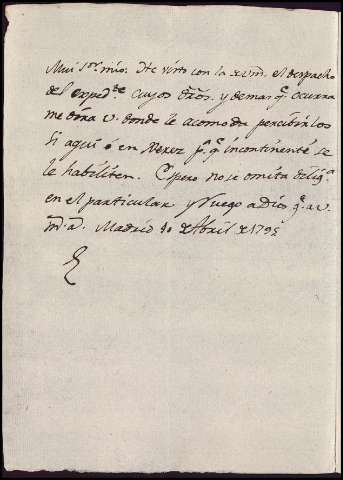 Mui s.or mio. He visto con la de vm. el despacho
del exped.te cuyos dros. y demas q.e ocurra
me dira v. donde le acomoda percibirlos
si aqui ó en Xerez p.a q.e incontinenti se
le habiliten. Espero no se omita delig.a
en el particular y Ruego a Dios g.e a v.
m.s a.s Madrid 10 de Abril de 1795